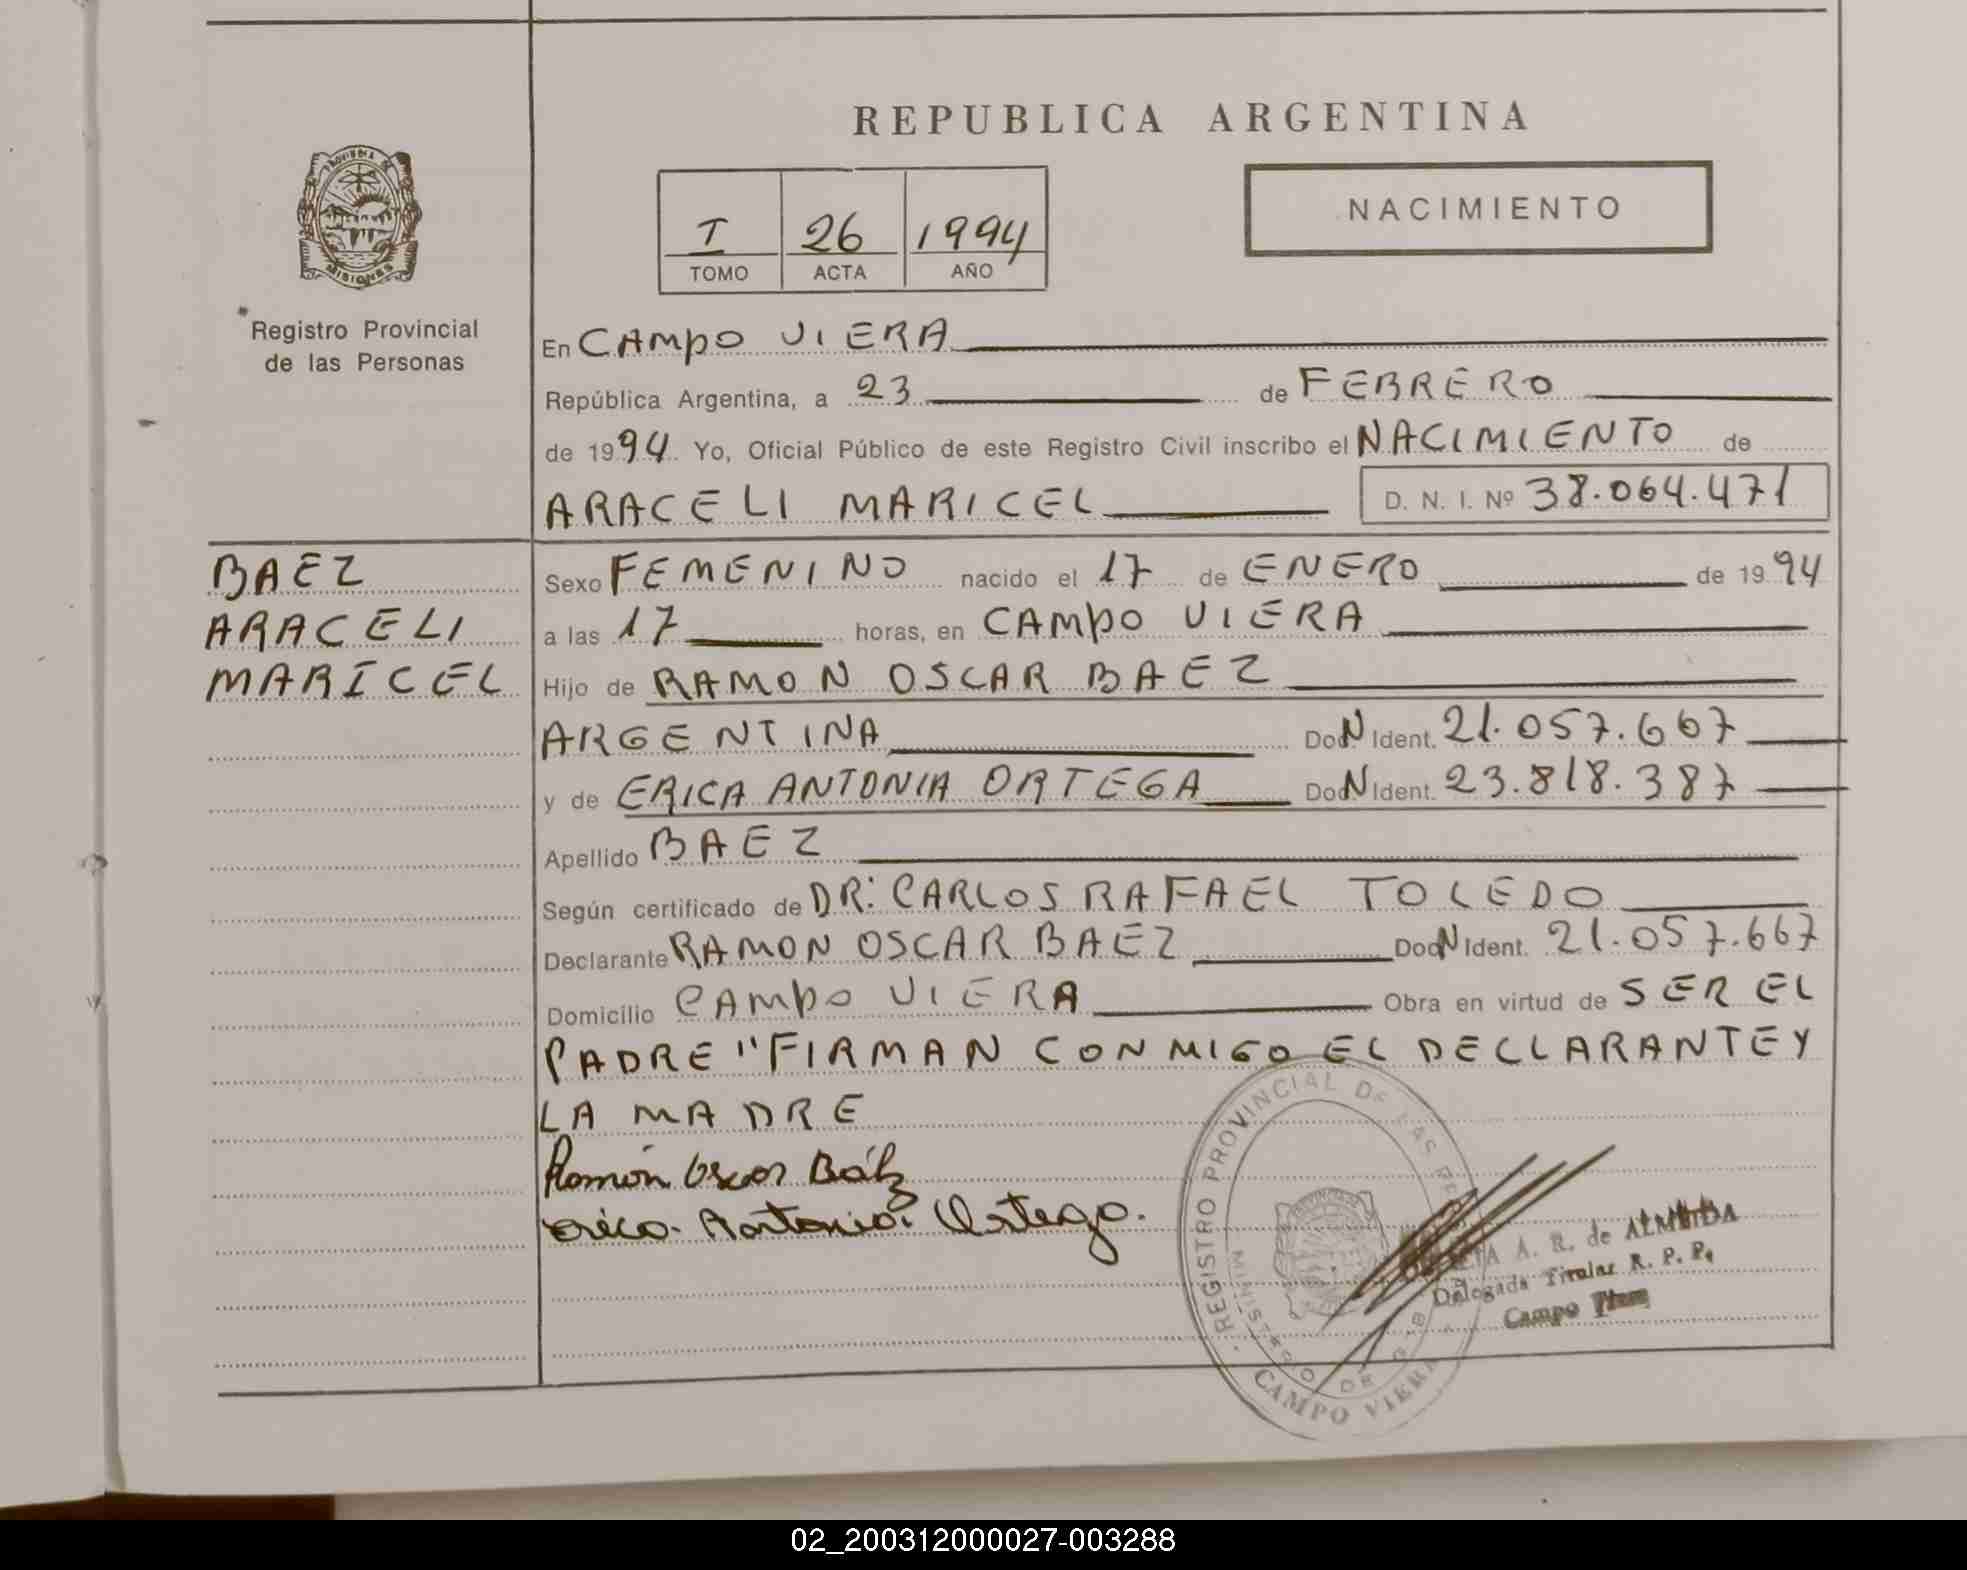 REPUBLICA ARGENTINA
PROVINCIA DE
MISIONES
I 26 1994
TOMO ACTA AÑO
NACIMIENTO
Registro Provincial
de las Personas
En CAMPO VIERA
República Argentina, a 23 de FEBRERO
de 1994. Yo, Oficial Público de este Registro Civil inscribo el NACIMIENTO de
ARACELI MARICEL D. N. I. Nº 38.064.471
BAEZ
ARACELI
MARICEL
Sexo FEMENINO nacido el 17 de ENERO de 1994
a las 17 horas, en CAMPO VIERA
Hijo de RAMON OSCAR BAEZ
ARGENTINA Doc. N Ident. 21.057.667
y de ERICA ANTONIA ORTEGA Doc. N Ident. 23.818.387
Apellido BAEZ
Según certificado de DR: CARLOS RAFAEL TOLEDO
Declarante RAMON OSCAR BAEZ Doc. N Ident. 21.057.667
Domicilio CAMPO VIERA Obra en virtud de SER EL
PADRE "FIRMAN CONMIGO EL DECLARANTE Y
LA MADRE
Ramón Oscar Báez
Erica Antonia Ortega.
REGISTRO PROVINCIAL DE LAS
MINISTERIO DE G
CAMPO VIERA
A. R. de ALMEIDA
Delegada Titular R. P. P.
Campo
02_200312000027-003288